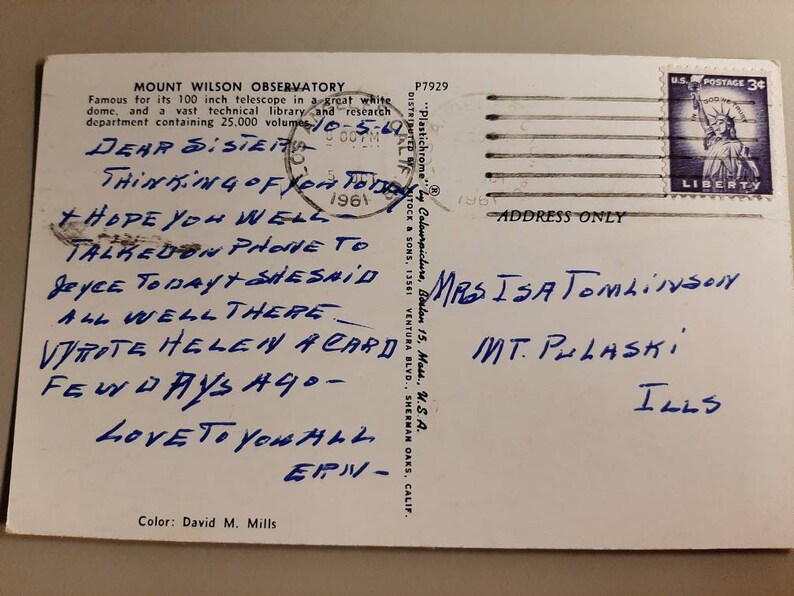 MOUNT WILSON OBSERVATORY
Famous for its 100 inch telescope in a great white
dome, and a vast technical library and research
department containing 25,000 volumes.
10-5-61
DEAR SISTER-
THINKING OF YOU TODAY
+ HOPE YOU WELL-
TALKED ON PHONE TO
JOYCE TODAY + SHE SAID
ALL WELL THERE-
WROTE HELEN A CARD
FEW DAYS AGO-
LOVE TO YOU ALL
Color: David M. Mills
P7929
"Plastichrome"® by Colourpicture, Boston 15, Mass., U.S.A.
DISTRIBUTED BY MITOCK & SONS, 13561 VENTURA BLVD., SHERMAN OAKS, CALIF.
LOS ANGELES CALIF
PM
5 OCT
1961
1961
U.S. POSTAGE 3¢
IN GOD WE TRUST
LIBERTY
ADDRESS ONLY
MRS ISA TOMLINSON
MT. PULASKI
ILLS